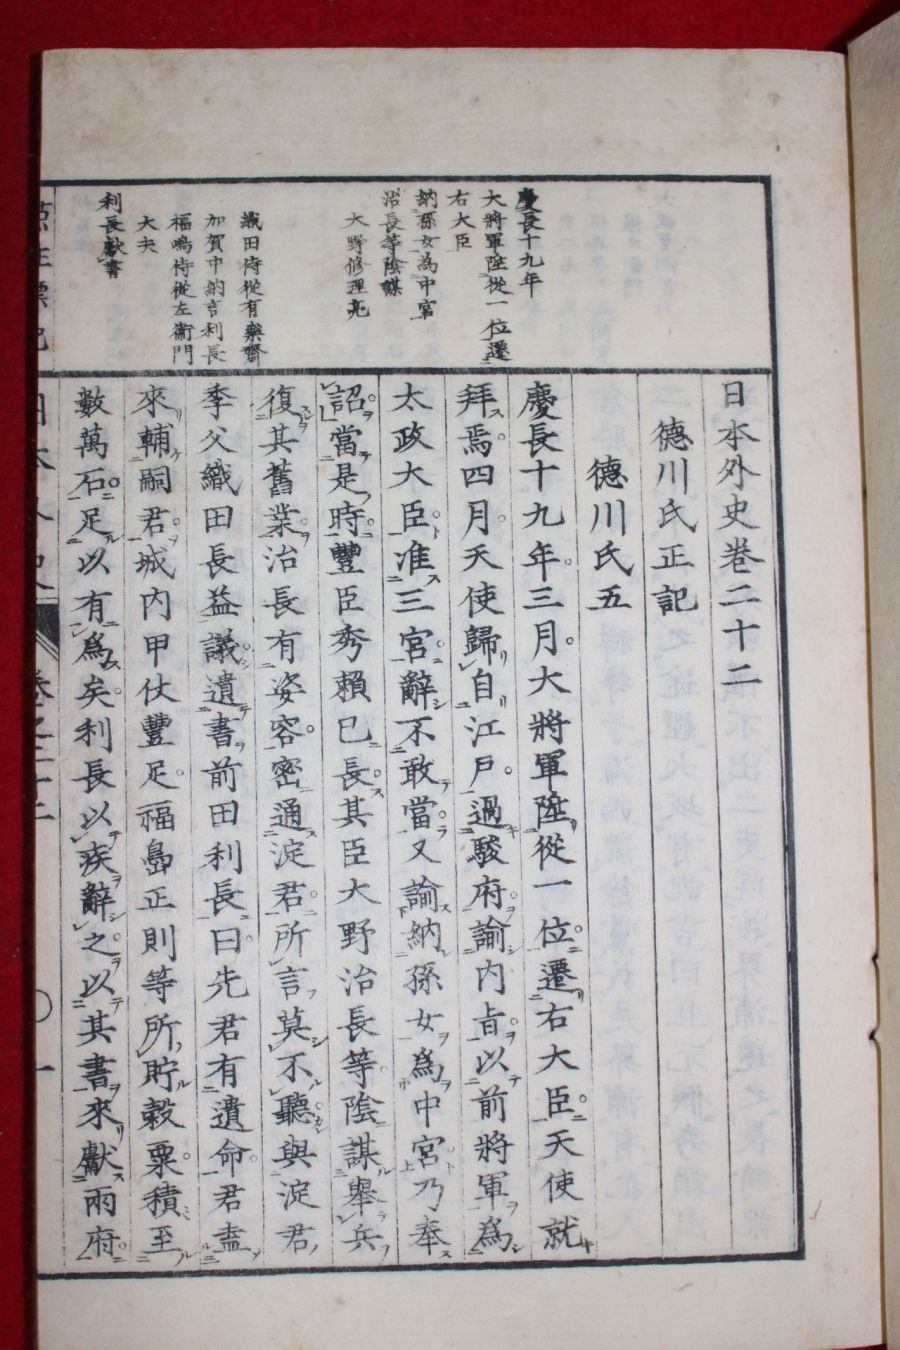 慶長十九年
大將軍陞從一位遷
右大臣
納孫女為中宮
治長等陰謀
大野修理亮
織田侍從有樂齋
加賀中納言利長
福嶋侍從左衞門
大夫
利長獻書
日本外史卷二十二
德川氏正記
德川氏五
慶長十九年三月大將軍陞從一位遷右大臣天使就
拜焉四月天使歸自江戸過駿府諭內旨以前將軍爲
太政大臣准三宮辭不敢當又諭納孫女爲中宮乃奉
詔當是時豐臣秀賴已長其臣大野治長等陰謀舉兵
復其舊業治長有姿容密通淀君所言莫不聽與淀君
季父織田長益議遺書前田利長曰先君有遺命君盍
來輔嗣君城內甲仗豐足福島正則等所貯穀粟積至
數萬石足以有爲矣利長以疾辭之以其書來獻兩府